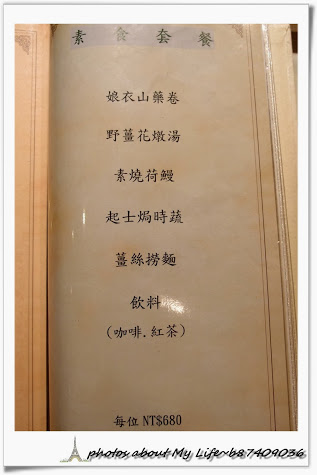 素食套餐
娘衣山藥卷
野薑花燉湯
素燒荷鰻
起士焗時蔬
薑絲撈麵
飲料
(咖啡.紅茶)
每位 NT$680
photos about My Life~b87409036